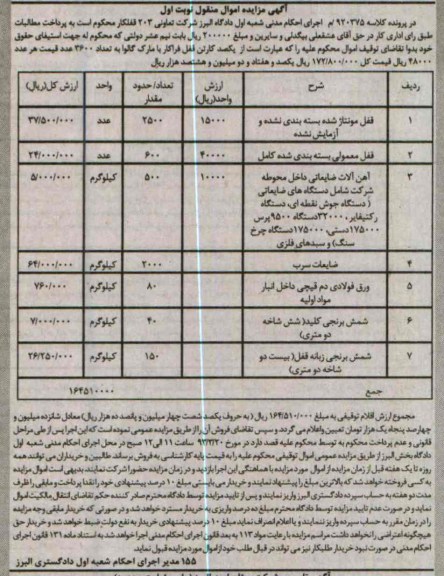 آگهی مزایده اموال منقول نوبت اول
در پرونده کلاسه ۹۲۰۳۷۵ /م اجرای احکام مدنی شعبه اول دادگاه البرز شرکت تعاونی ۲۰۳ قفلکار محکوم است به پرداخت مطالبات
طبق رای اداری کار در حق آقای عشقعلی بیگدلی و سایرین و مبلغ ۲۰۰۰۰۰ ریال بابت نیم عشر دولتی که محکوم له جهت استیفای حقوق
خود بدوا تقاضای توقیف اموال محکوم علیه را که عبارت است از یکصد کارتن قفل فراکار با مارک گالوا به تعداد ۳۶۰۰ عدد قیمت هر عدد
۴۸۰۰۰ ریال قیمت کل ۱۷۲/۸۰۰/۰۰۰ ریال یکصد و هفتاد و دو میلیون و هشتصد هزار ریال
ردیف شرح ارزش واحد(ریال) تعداد/حدود مقدار واحد ارزش کل(ریال)
۱ قفل مونتاژ شده بسته بندی نشده و آزمایش نشده ۱۵۰۰۰ ۲۵۰۰ عدد ۳۷/۵۰۰/۰۰۰
۲ قفل معمولی بسته بندی شده کامل ۴۰۰۰۰ ۶۰۰ عدد ۲۴/۰۰۰/۰۰۰
۳ آهن آلات ضایعاتی داخل محوطه ۱۰۰۰۰ ۵۰۰ کیلوگرم ۵/۰۰۰/۰۰۰
شرکت شامل دستگاه های ضایعاتی
( دستگاه جوش نقطه ای، دستگاه
رکتیفایر، ۳۲۰۰۰دستگاه ۹۵۰۰پرس
۱۷۵۰۰۰دستی، ۱۷۵۰۰۰دستگاه چرخ
سنگ) و سبدهای فلزی
۴ ضایعات سرب ۲۰۰۰ کیلوگرم ۶۴/۰۰۰/۰۰۰
۵ ورق فولادی دم قیچی داخل انبار مواد اولیه ۸۰ کیلوگرم ۷۶۰/۰۰۰
۶ شمش برنجی کلید( شش شاخه دو متری) ۴۰ کیلوگرم ۷/۰۰۰/۰۰۰
۷ شمش برنجی زبانه قفل( بیست دو شاخه دو متری) ۱۵۰ کیلوگرم ۲۶/۲۵۰/۰۰۰
جمع ۱۶۴۵۱۰۰۰۰
مجموع ارزش اقلام توقیفی به مبلغ ۱۶۴/۵۱۰/۰۰۰ ریال ( به حروف یکصد شصت چهار میلیون و پانصد ده هزار ریال) معادل شانزده میلیون و
چهارصد پنجاه یک هزار تومان تعیین واعلام می گردد و سپس تقاضای فروش آن را از طریق مزایده عمومی نموده است که این اجرا پس از طی مراحل
قانونی و عدم پرداخت محکوم به توسط محکوم علیه قصد دارد در مورخ ساعت ۱۱ الی ۱۲ صبح در محل اجرای احکام مدنی شعبه اول
دادگاه بخش البرز از طریق مزایده عمومی اموال توقیفی محکوم علیه را به قیمت پایه کارشناسی به فروش برساند طالبین و خریداران می توانند همه
روزه تا یک هفته قبل از زمان مزایده از اموال مورد مزایده با هماهنگی این اجرا بازدید و در زمان مزایده حضور شرکت نمایند بدیهی است اموال مزایده
به کسی فروخته خواهد شد که بالاترین مبلغ را پیشنهاد نمایند و خریدار می بایستی مبلغ ۱۰ درصد پیشنهادی خود را نقدا پرداخت و مابقی را ظرف
مدت دو هفته به حساب سپرده دادگستری البرز واریز نمایند و پس از تایید مزایده توسط دادگاه محترم صادر کننده حکم تقاضای انتقال مالکیت اموال
نماید و در صورت عدم تایید مزایده توسط دادگاه محترم مبلغ ده درصد واریزی به خریدار مسترد خواهد شد و در صورتی که خریدار مابقی وجه مزایده
را در زمان مقرر به حساب سپرده واریز ننمایند و یا اعلام انصراف نماید مبلغ ۱۰ درصد پیشنهادی خریدار به نفع دولت ضبط خواهد شد و خریدار حق
هیچگونه اعتراضی را نخواهد داشت مراسم مزایده با رعایت مواد ۱۱۳ به بعد قانون اجرای احکام مدنی اجرا خواهد شد به استناد ماده ۱۳۱ قانون اجرای
احکام مدنی در صورت نبود خریدار طلبکار نیز می تواند در قبال طلب خود از اموال مورد مزایده قبول نماید.
۱۵۵ مدیر اجرای احکام شعبه اول دادگستری البرز